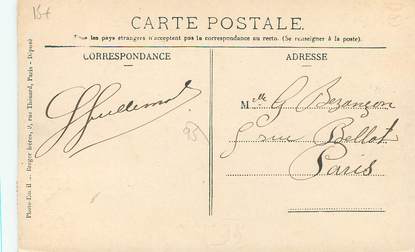 15+
CARTE POSTALE.
Tous les pays étrangers n'acceptent pas la correspondance au recto. (Se renseigner à la poste).
CORRESPONDANCE
ADRESSE
Mlle G Bezançon
5 rue Bellot
Paris
95
Berger frères, 9, rue Thénard, Paris - Déposé